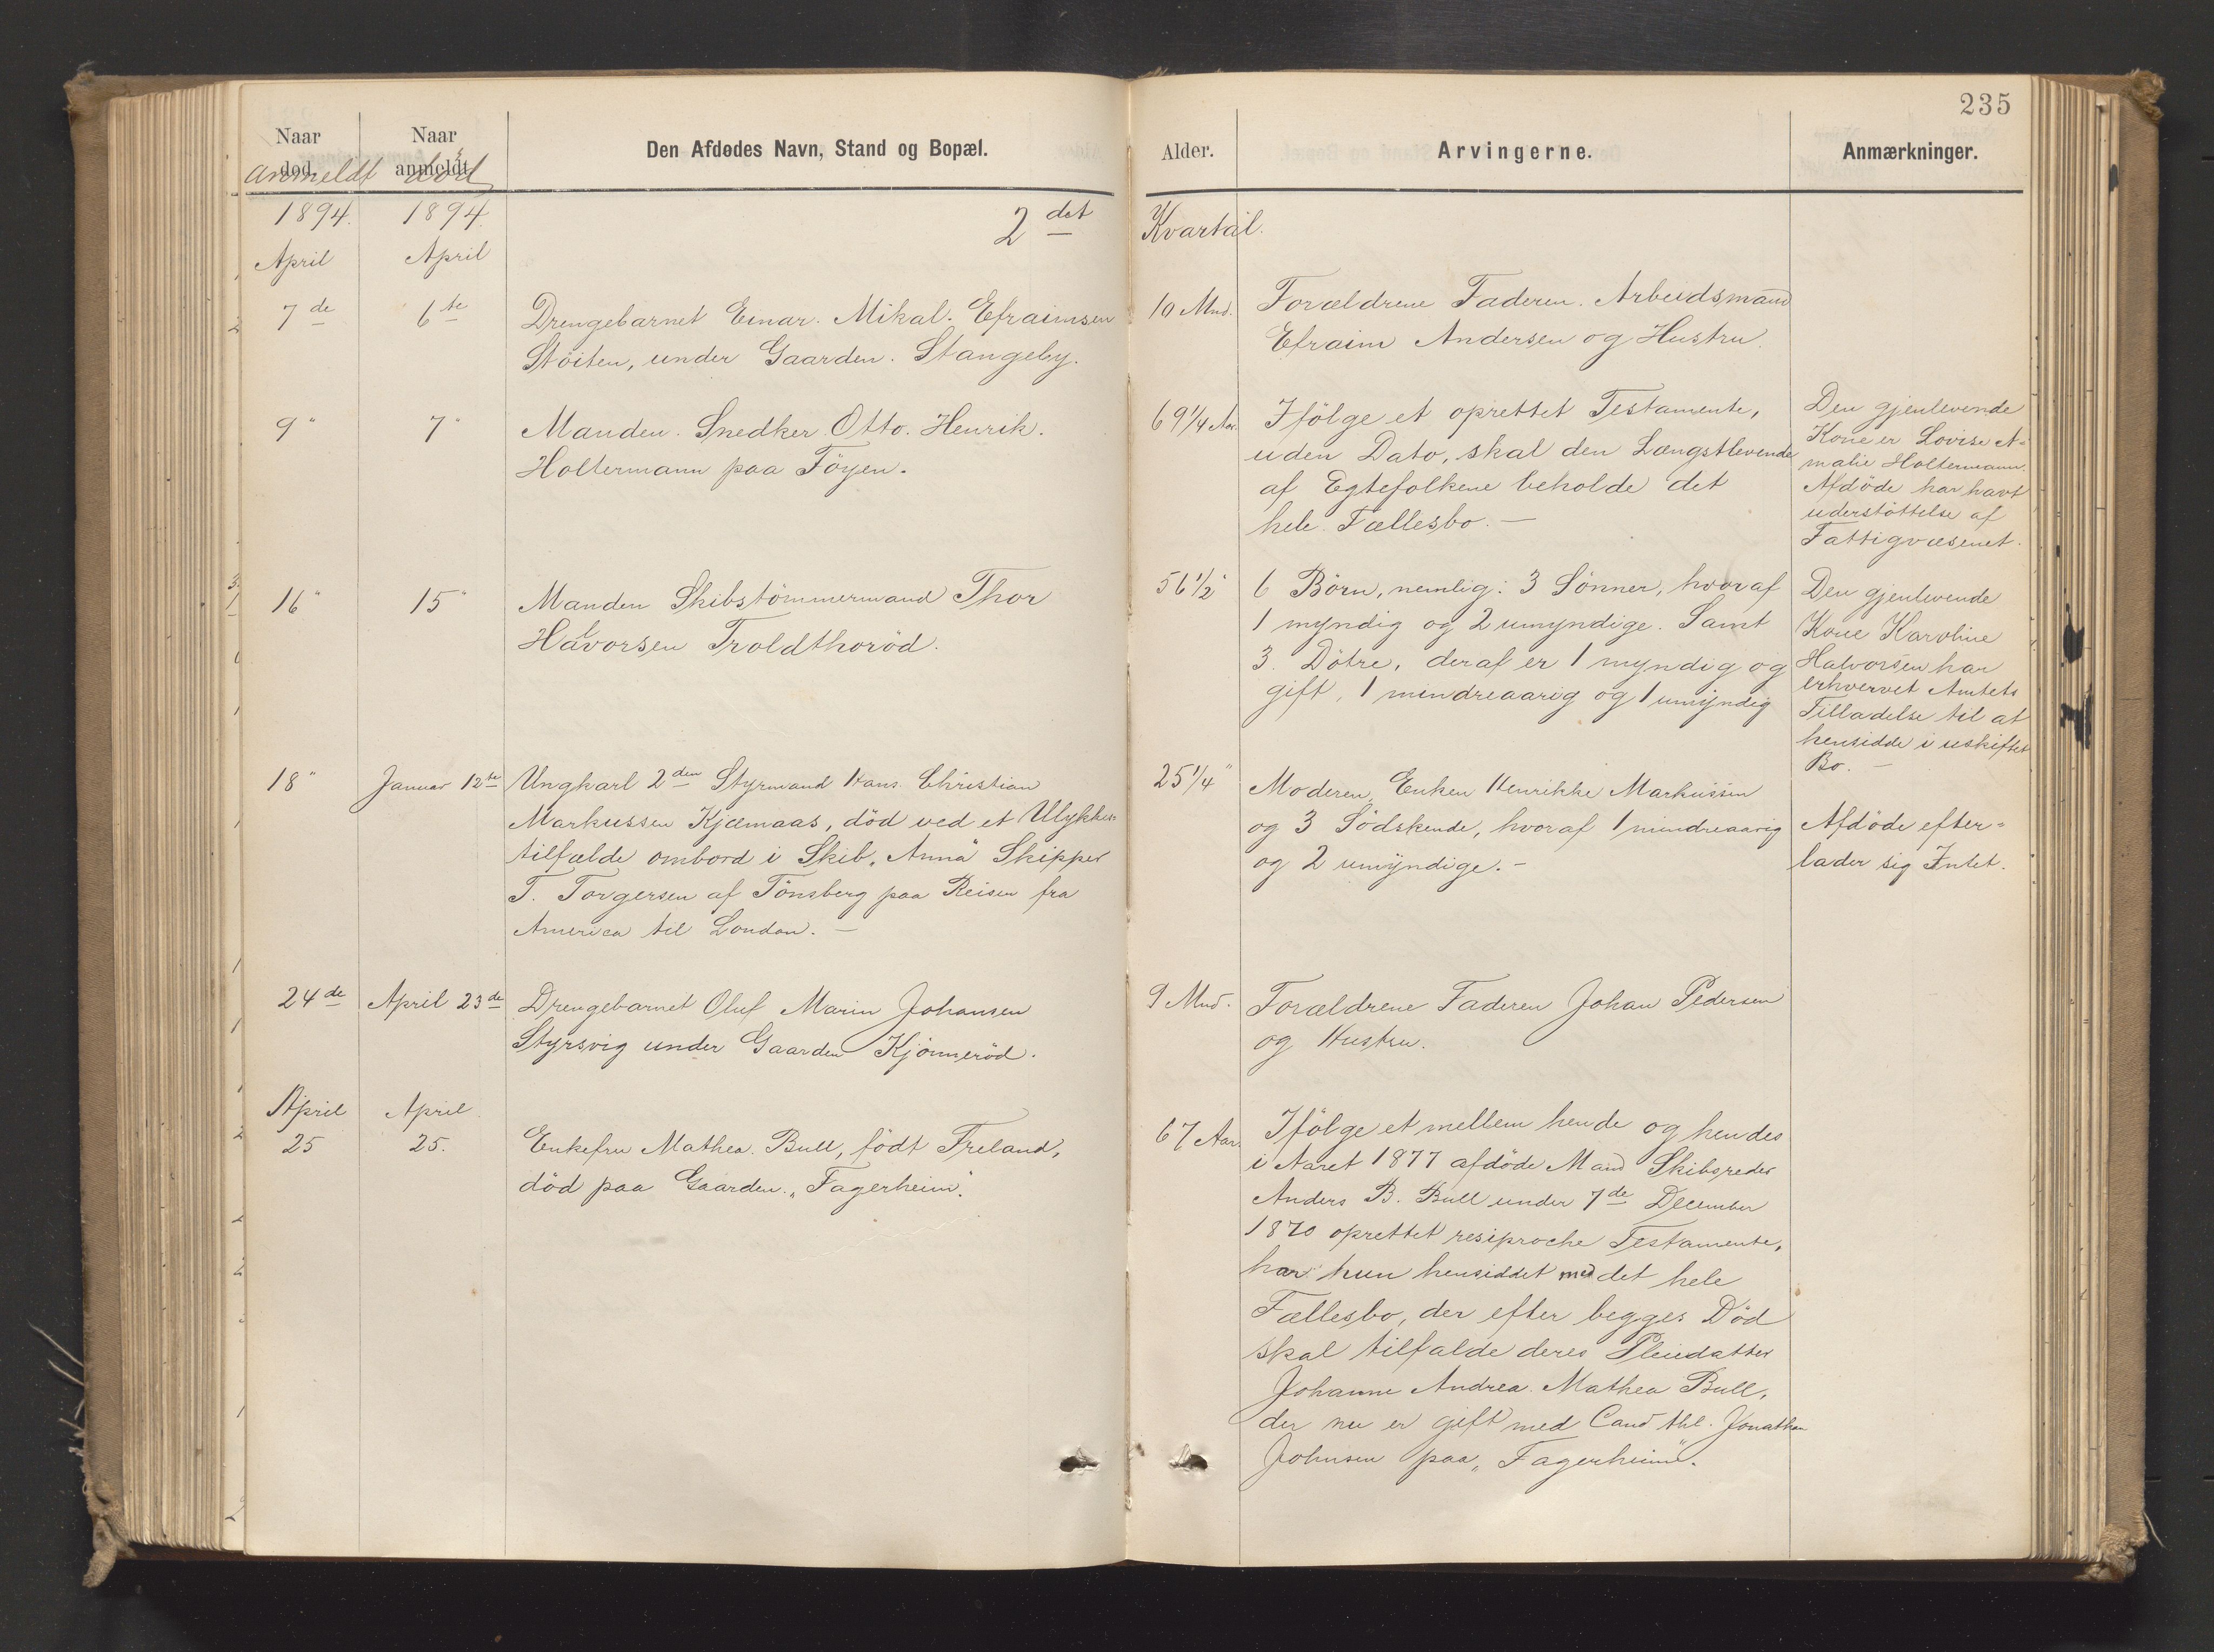 235
Naar død.
Naar anmeldt
Den Afdødes Navn, Stand og Bopæl.
Alder.
Arvingerne.
Anmærkninger.
anmeldt død
1894. 1894. 2det Kvartal.
April April
7de 6te Drengebarnet Einar. Mikal. Efraimsen
Støiten, under Gaarden. Stangeby.
10 Mnd. Forældrene Faderen. Arbeidsmand
Efraim Andersen og Hustru.
9 " 7 " Manden. Snedker Otto. Henrik.
Holtermann paa Föyen.
69 1/4 Aar. Ifölge et oprettet Testamente,
uden Dato, skal den Længstlevende
af Egtefolkene beholde det
hele Fællesbo. —
Den gjenlevende
Kone er Lovise A=
malie Holtermann.
Afdöde har havt
understöttelse af
Fattigvæsenet.
16 " 15 " Manden Skibstömmermand Thor
Halvorsen Troldthoröd.
56 1/2 " 6 Börn, nemlig: 3 Sönner, hvoraf
1 myndig og 2 umyndige. Samt
3. Dötre, deraf er 1 myndig og
gift, 1 mindreaarig og 1 umyndig
Den gjenlevende
Kone Karoline
Halvorsen har
erhvervet Amtets
Tilladelse til at
hensidde i uskiftet
Bo. —
18 " Januar 12te Ungkarl 2den Styrmand Hans Christian
Markussen Kjæmaas, död ved et Ulykkes=
tilfælde ombord i Skib „Anna" Skipper
T. Torgersen af Tönsberg paa Reisen fra
America til London. —
25 1/4 " Moderen, Enken Henrikke Markussen
og 3 Södskende, hvoraf 1 mindreaarig
og 2 umyndige. -
Afdöde efter=
lader sig Intet.
24de April 23de Drengebarnet Oluf Marin Johansen
Styrsvig under Gaarden Kjönneröd.
9 Mnd. Forældrene Faderen Johan Pedersen
og Hustru.
April April.
25 25. Enkefru Mathea. Bull, födt Freland,
död paa Gaarden „Fagerheim".
67 Aar. Ifölge et mellem hende og hendes
i Aaret 1877 afdöde Mand Skibsreder
Anders B. Bull under 7de December
1870 oprettet resiproche Testamente,
har hun hensiddet med det hele
Fællesbo, der efter begges Död
skal tilfalde deres Pleiedatter
Johanne Andrea. Mathea Bull,
der nu er gift med Cand. thl. Jonathan
Johnsen paa „Fagerheim".